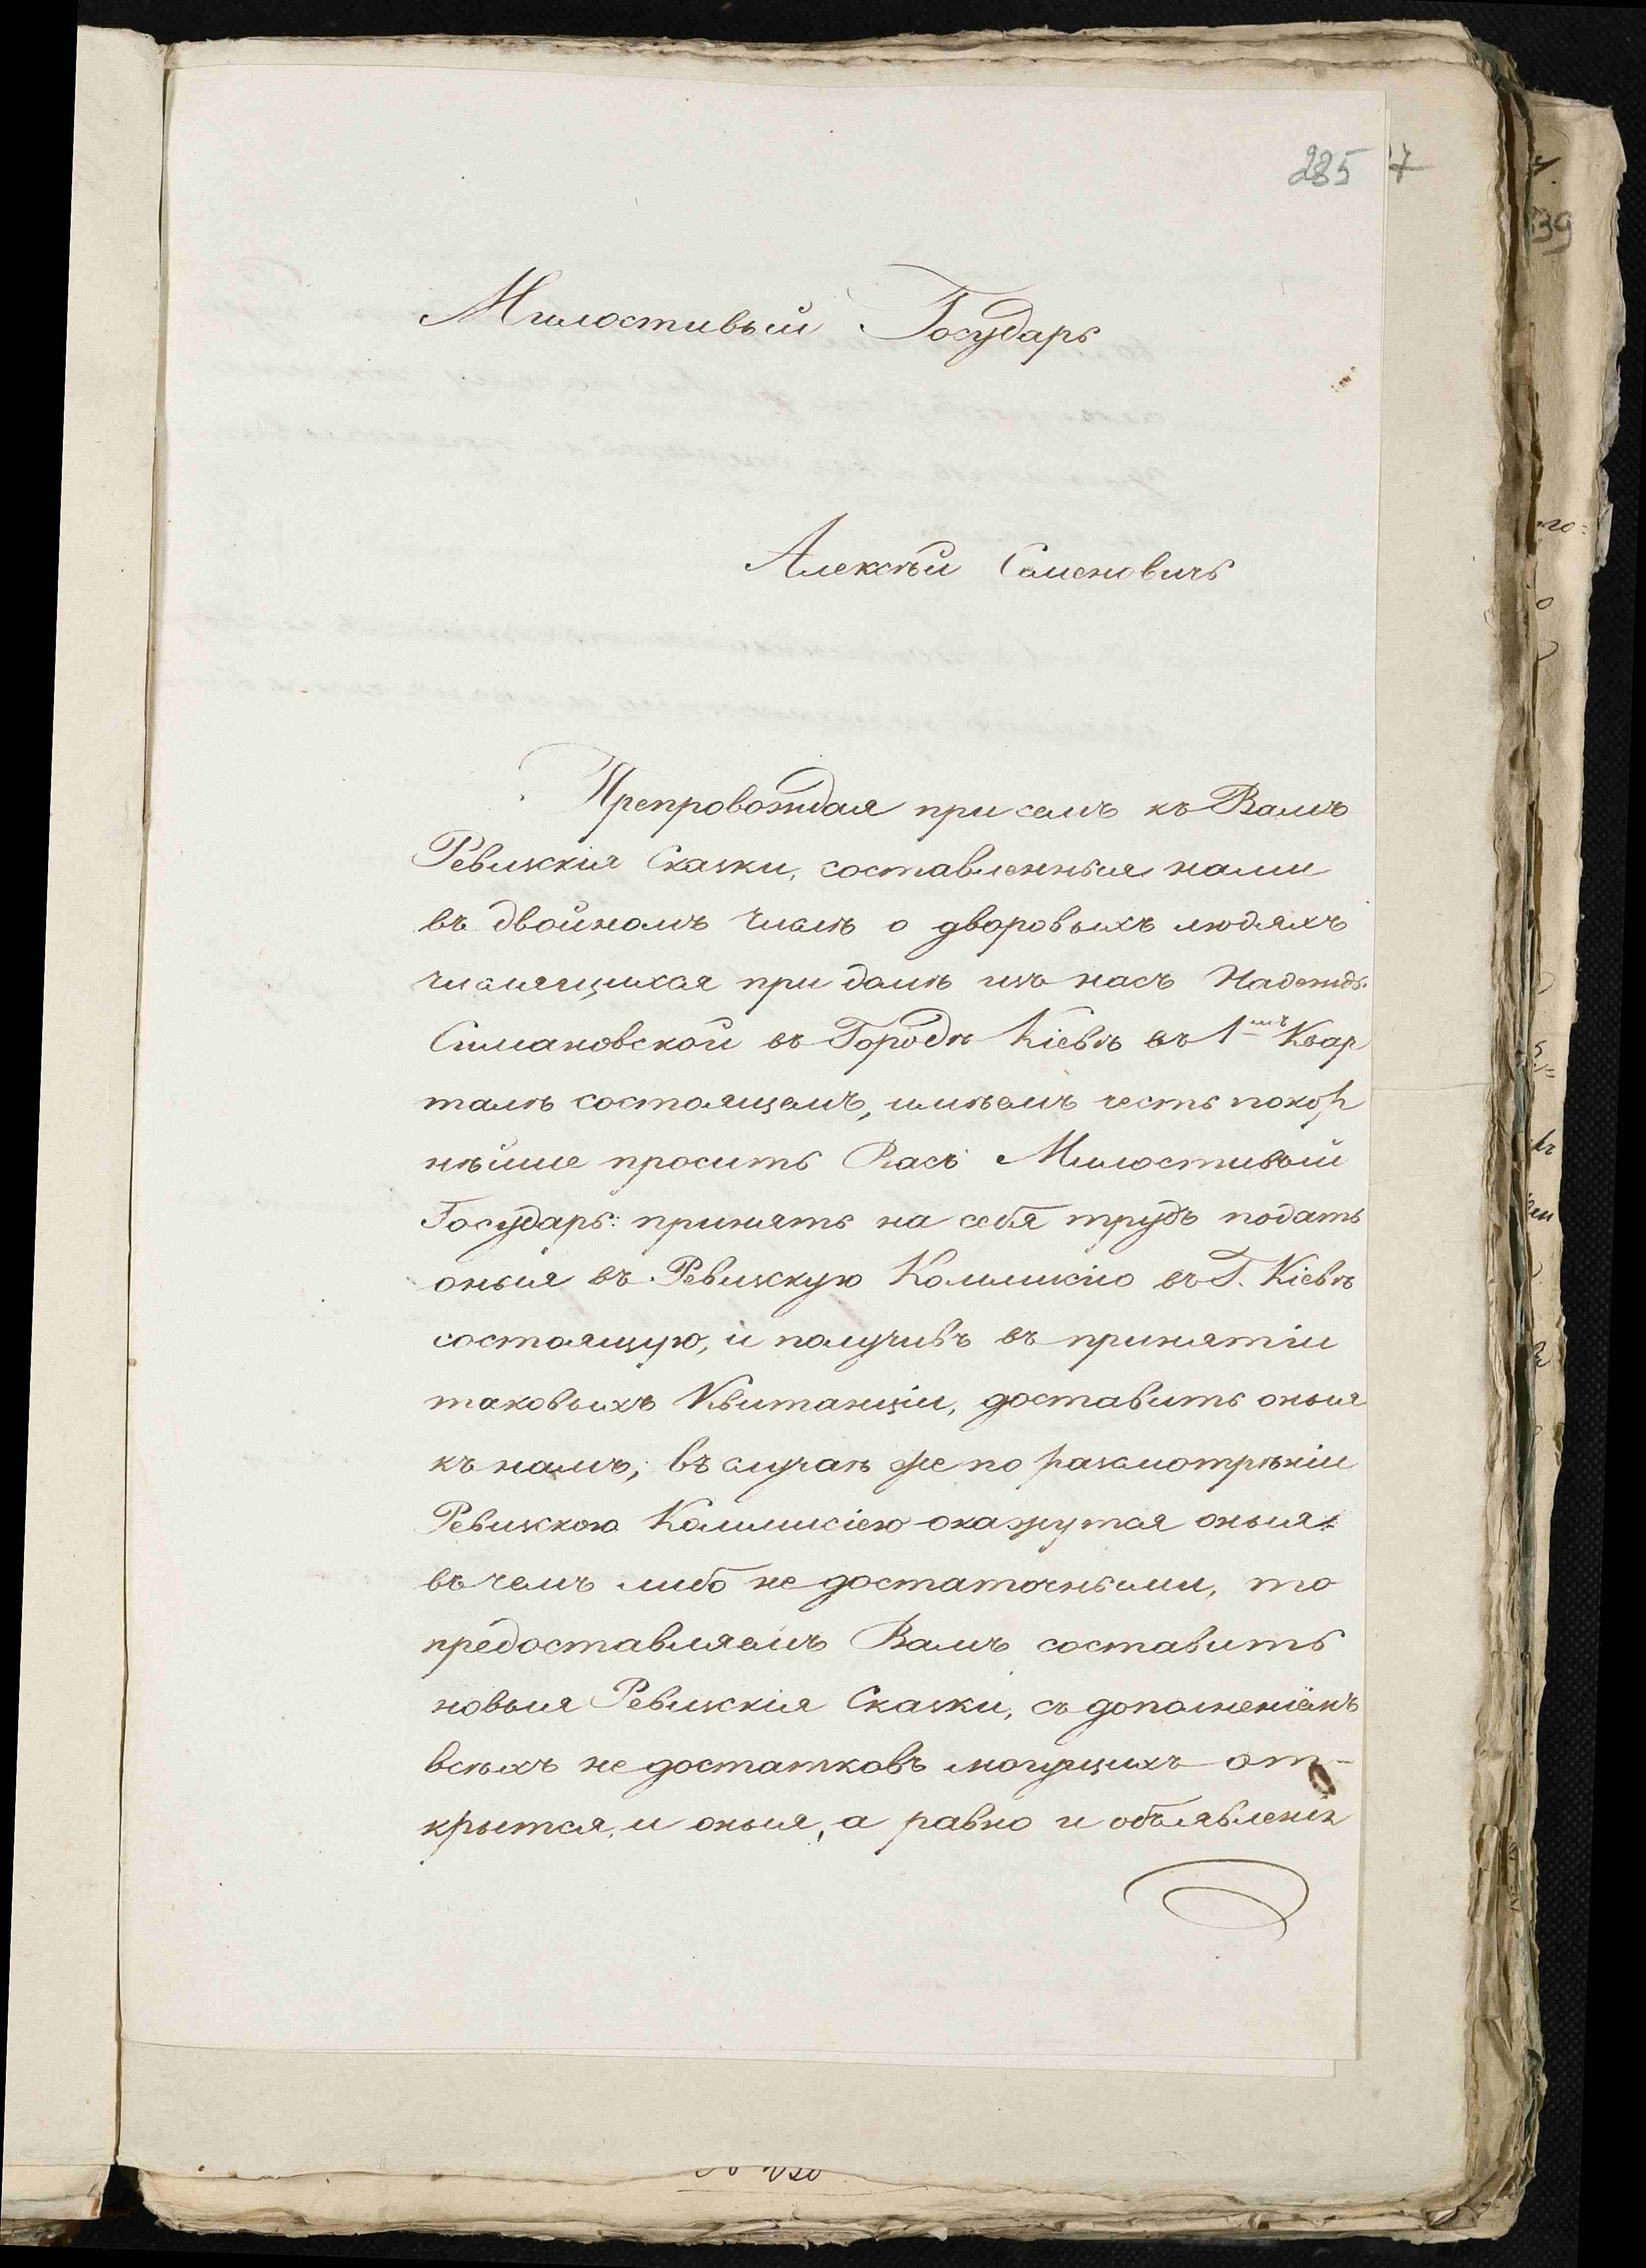 285
Милостивый Государь
Алексѣй Семеновичъ
Препровождая при семъ къ Вамъ
Ревизкія Сказки, составленныя нами
въ двойномъ числѣ о дворовыхъ людяхъ
числящихся при домѣ изъ насъ Надежды
Симановской въ Городѣ Кіевѣ въ 1мъ Квар
талѣ состоящемъ, имѣемъ честь покор
нѣйше просить Васъ Милостивый
Государь: принять на себя трудъ подать
оныя въ Ревизкую Коммисію въ Г. Кіевѣ
состоящую, и получивъ въ принятіи
таковыхъ Квитанціи, доставить оныя
къ намъ; въ случаѣ же по разсмотрѣніи
Ревизкою Коммисіею окажутся оныя
въ чемъ либо не достаточными, то
предоставляемъ Вамъ составить
новыя Ревизкія Сказки, съ дополненіемъ
всѣхъ не достатковъ могущихъ от-
крытся, и оныя, а равно и объявленія